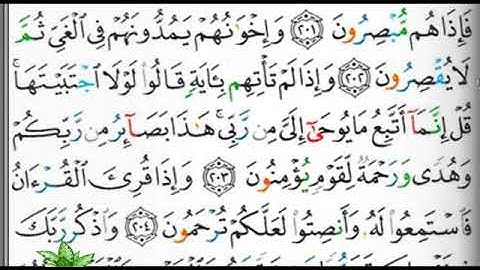 فَإِذَا هُم مُّبْصِرُونَ ٢٠١ وَإِخْوَٰنُهُمْ يَمُدُّونَهُمْ فِي ٱلْغَيِّ ثُمَّ
لَا يُقْصِرُونَ ٢٠٢ وَإِذَا لَمْ تَأْتِهِم بِـَٔايَةٍ قَالُوا۟ لَوْلَا ٱجْتَبَيْتَهَا ۚ
قُلْ إِنَّمَآ أَتَّبِعُ مَا يُوحَىٰٓ إِلَىَّ مِن رَّبِّى ۚ هَٰذَا بَصَآئِرُ مِن رَّبِّكُمْ
وَهُدًى وَرَحْمَةٌ لِّقَوْمٍ يُؤْمِنُونَ ٢٠٣ وَإِذَا قُرِئَ ٱلْقُرْءَانُ
فَٱسْتَمِعُوا۟ لَهُۥ وَأَنصِتُوا۟ لَعَلَّكُمْ تُرْحَمُونَ ٢٠٤ وَٱذْكُر رَّبَّكَ